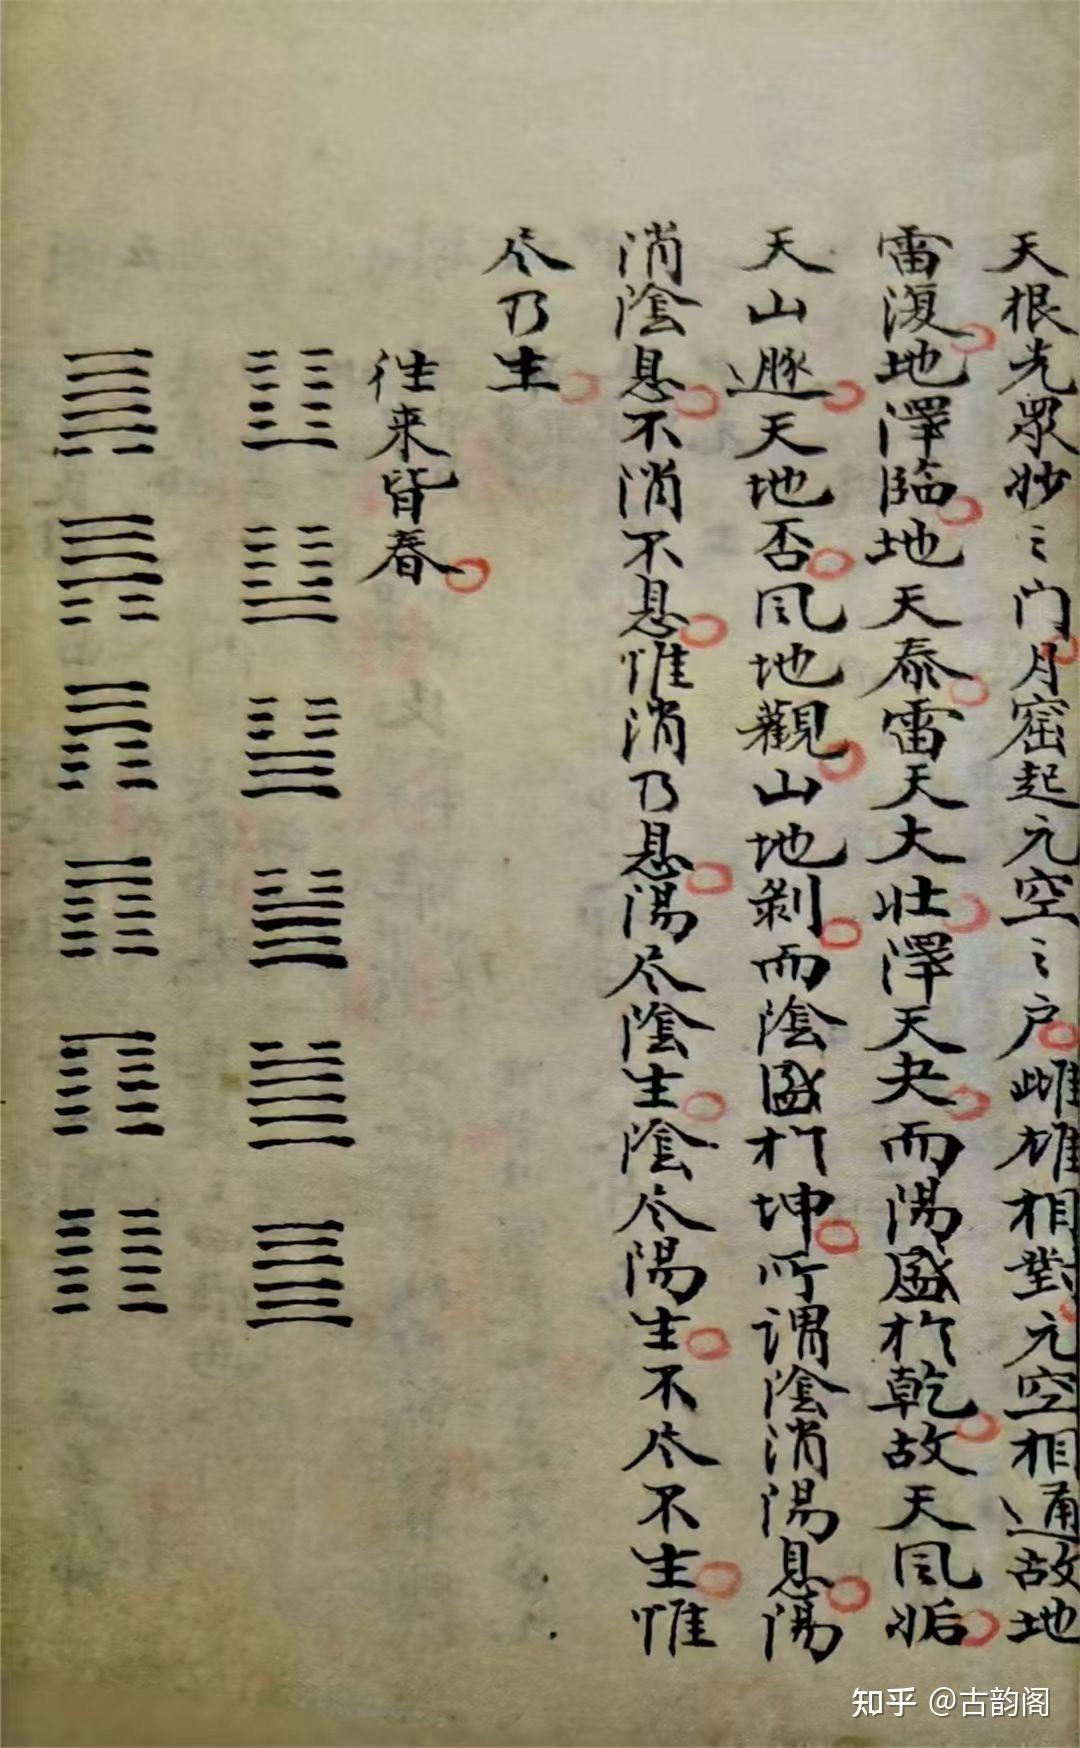 天根光眾妙之门月窟起元空之户雌雄相對元空相通故地
雷復地澤臨地天泰雷天大壯澤天夬而陽盛於乾故天风姤
天山遯天地否风地觀山地剝而陰盛於坤所谓陰消陽息陽
消陰息不消不息惟消乃息陽尽陰生陰尽陽生不尽不生惟
尽乃生
往来皆春
知乎 @古韵阁